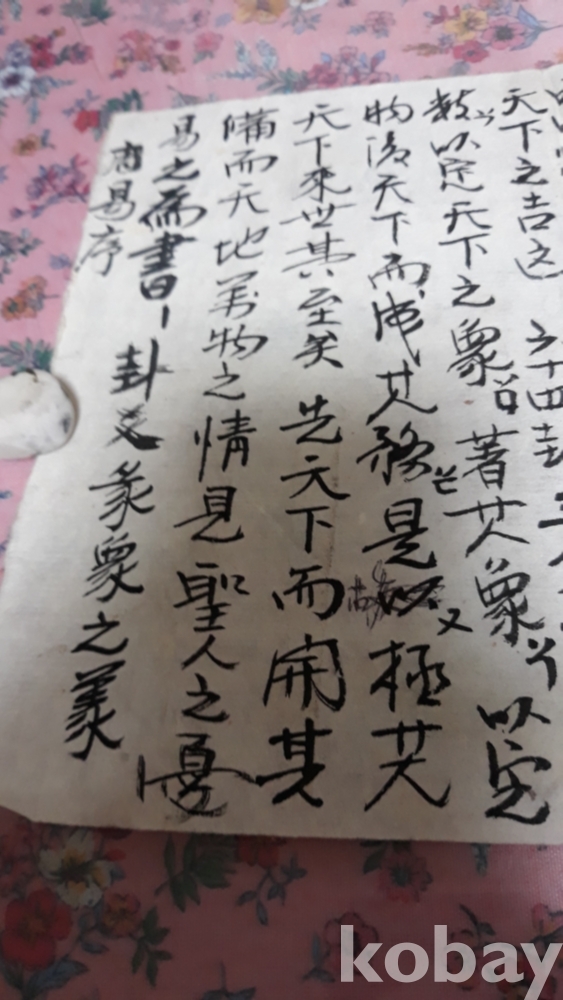 周易序
易之爲書丨卦爻彖象之義
備而天地萬物之情見聖人之憂
天下來世其至矣先天下而開其
物後天下而成其務是以極其
數以定天下之象著其象以定
天下之吉凶六十四卦三
kobay